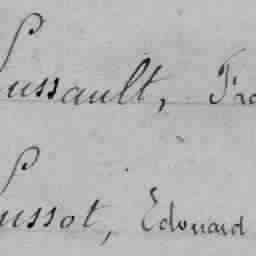 Lussault, Fra
Lussot, Edouard